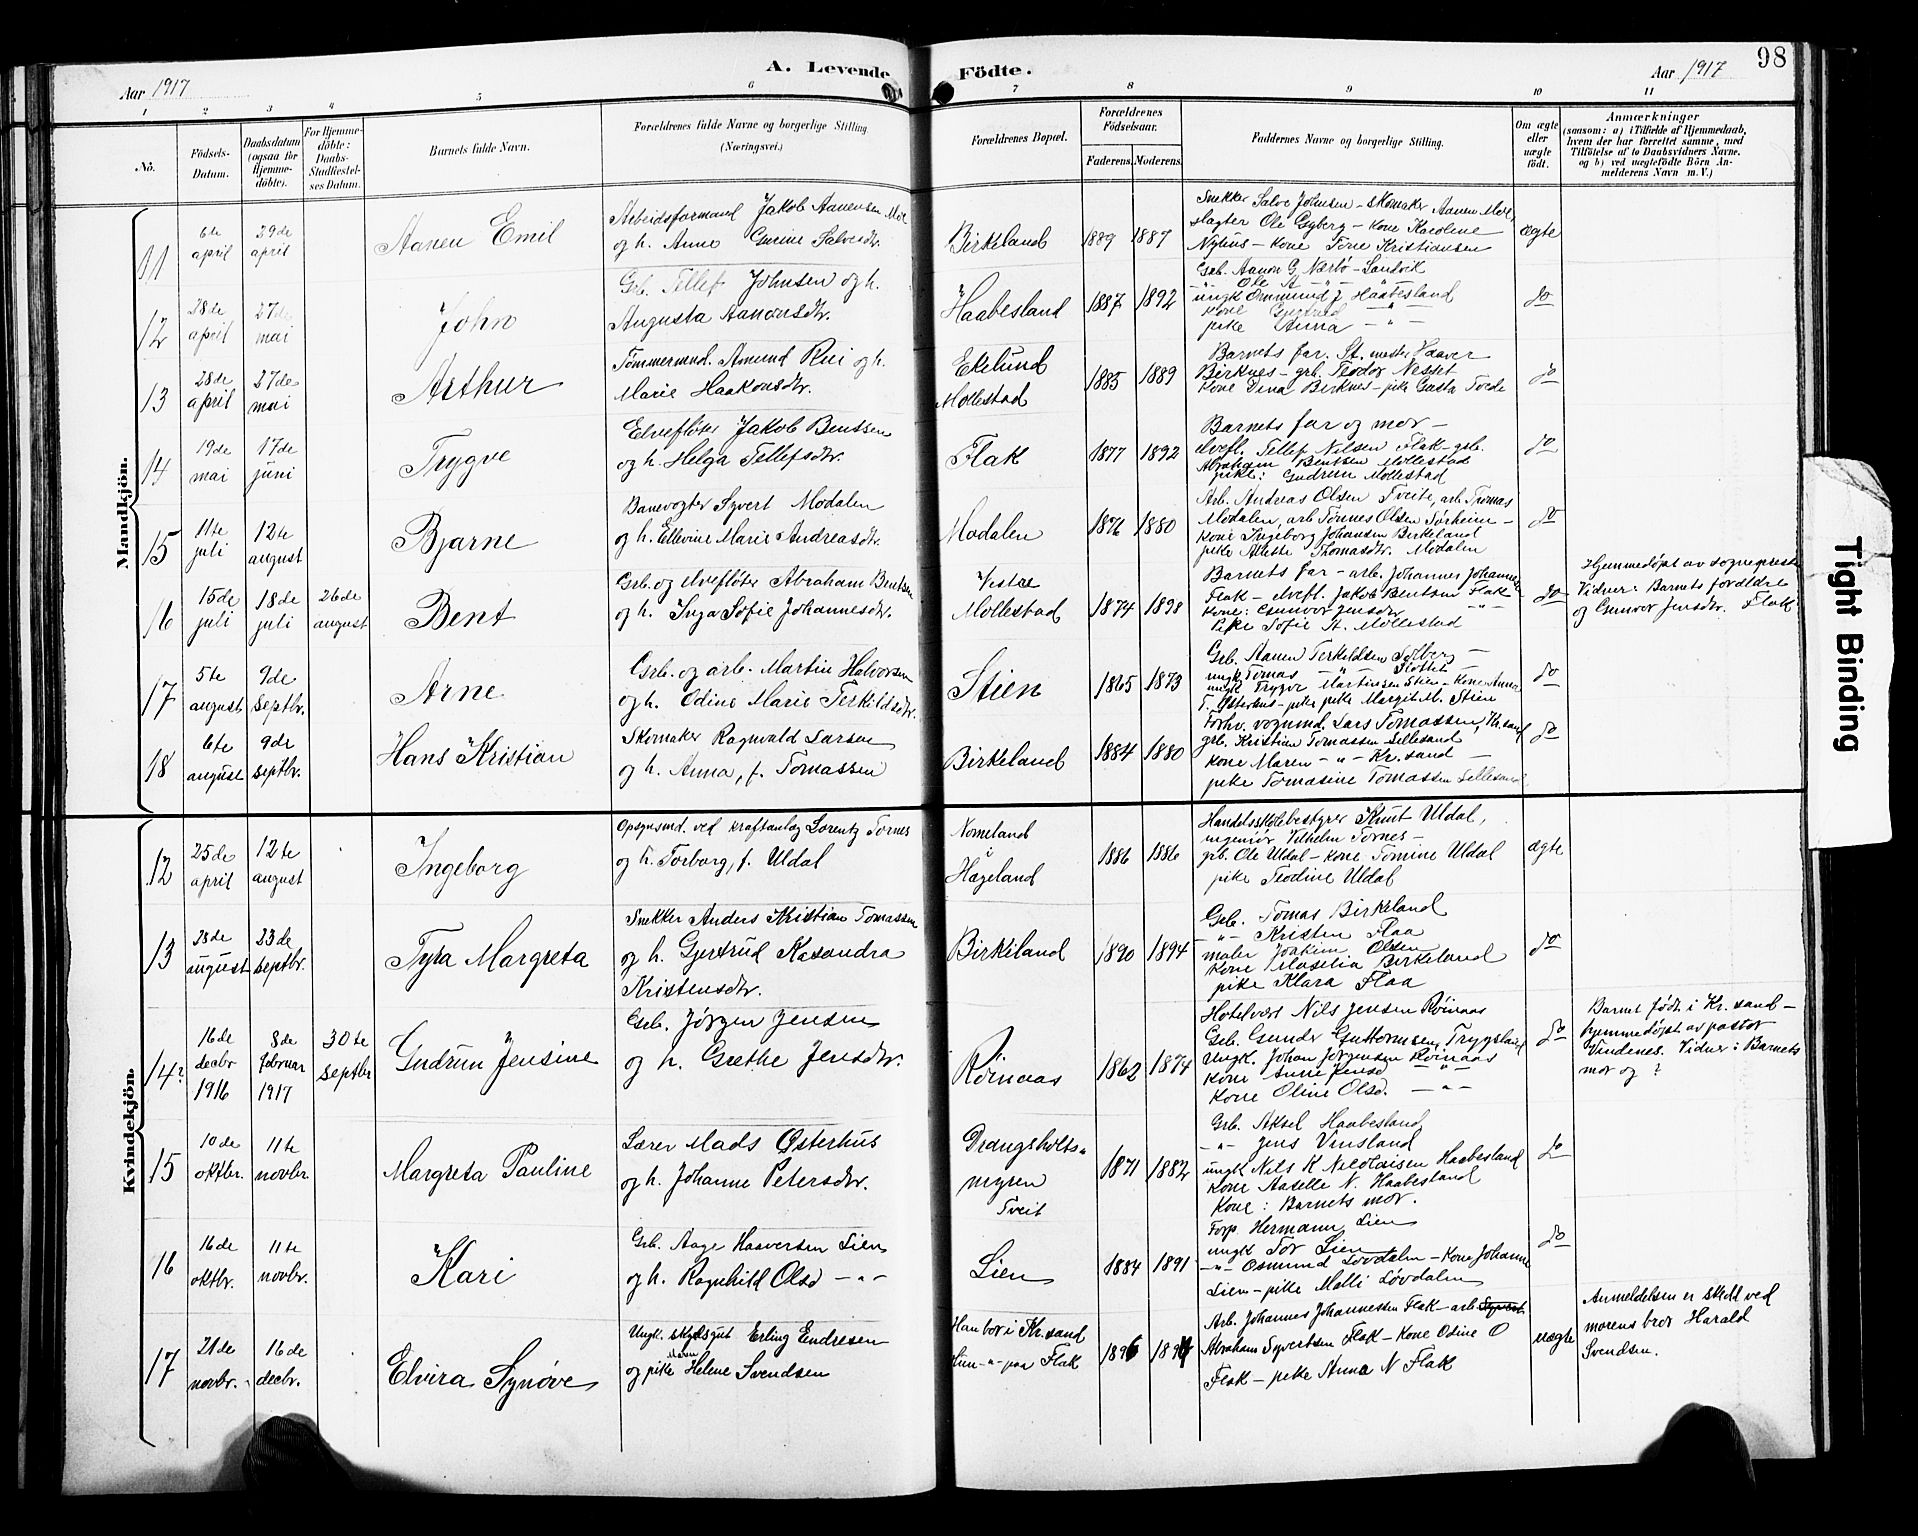 98
A. Levende Födte.
Aar 1917
Aar 1917
1 2 3 4 5 6 7 8 9 10 11
No.
Födsels-Datum.
Daabsdatum (ogsaa for Hjemmedöbte).
For Hjemmedöbte: Daabs-Stadfæstelses Datum.
Barnets fulde Navn.
Forældrenes fulde Navne og borgerlige Stilling. (Næringsvei.)
Forældrenes Bopæl.
Forældrenes Födselsaar.
Faderens. Moderens.
Faddernes Navne og borgerlige Stilling.
Om ægte eller uægte födt.
Anmærkninger
(saasom: a) i Tilfælde af Hjemmedaab,
hvem der har forrettet samme, med
Tilföielse af to Daabsvidners Navne.
og b) ved uægtefödte Börn Anmelderens Navn m. V.)
Mandkjön.
11
6te april
29de april
Aanen Emil
Arbeidsformand Jakob Aanensen Moe
og h. Anne Gurine Salvesdtr.
Birkeland
1889 1887
Snekker Salve Johnsen – skomaker Aanen Moe,
slagter Ole Gyberg – kone Karolene
Nylius – kone Tone Kristiansen
ægte
12
28de april
27de mai
John
Grb. Tellef Johnsen og h.
Augusta Aanonsdtr.
Haabesland
1887 1892
Grb. Aanon G. Nærbø – Sandvik
–"– Ole A –"– –"–
ungk Ommund J Haabesland
kone Gusgrud –"–
pike Anna –"–
do
13
28de april
27de mai
Arthur
Tømmermnd. Amund Rui og h.
Marie Haakonsdtr.
Ekelund
Mollestad
1885 1889
Barnets far. St. mester Haaver
Birknes – grb. Teodor Nesset
Kone Dina Birknes – pike Gusta Tvede
do
14
19de mai
17de juni
Trygve
Elvefløter Jakob Bentsen
og h. Helga Tellefsdtr.
Flak
1877 1892
Barnets far og mor –
elvefl. Tellef Nilsen Flak – grb.
Abraham Bentsen Mollestad
pike: Gudrun Mollestad
do
15
11te juli
12te august
Bjarne
Banevogter Syvert Modalen
og h. Ellevine Marie Andreasdtr.
Modalen
1876 1880
Arb. Andreas Olsen Tveite, arb. Thomas
Modalen, arb Tønnes Olsen Sørheim –
kone Ingeborg Johansen Birkeland
pike Aleste Thomasdtr. Modalen
do
16
15de juli
18de juli
26de august
Bent
Grb. og elvefløter Abraham Bentsen
og h. Inga Sofie Johannesdtr.
Vestre
Mollestad
1874 1898
Barnets far – arb. Johannes Johannesen
Flak – elvefl. Jakob Bentsen Flak
kone: Gunvor Jensdtr –"–
Pike Sofie A. Mollestad
do
Hjemmedøpt av sogneprest
Vidner: Barnets forældre
og Gunvor Jensdtr. Flak
17
5te august
9de septbr.
Arne
Grb. og arb. Martin Halvorsen
og h. Odine Marie Terkildsdtr.
Stien
1865 1873
Grb. Aanen Terkildsen Solberg –
ungk Tomas –"– Flottet –
ungk Trygve Martinsen Stien – Kone Anna
T. Østerhus – pike pike Margit M. Stien
do
18
6te august
9de septbr.
Hans Kristian
Skomaker Ragnvald Larsen
og h. Anna, f. Tomassen
Birkeland
1884 1880
Forhv. vognmd. Lars Tomassen, Kr.sand
grb. Kristian Tomassen Lillesand
kone Maren –"– Kr.sand –
pike Tomasine Tomassen Lillesand
do
Kvindekjön.
12
25de april
12te august
Ingeborg
Opsynsmd. ved kraftanlæg Lorentz Tornes
og h. Torborg, f. Uldal
Nomeland
i
Hægeland
1886 1886
Handelsskolebestyrer Knut Uldal,
ingeniør Vilhelm Tornes –
grb. Ole Uldal – kone Tomine Uldal
pike Teodine Uldal
ægte
13
25de august
23de septbr.
Tyra Margreta
Snekker Anders Kristian Tomassen
og h. Gjertrud Kasandra
Kristensdtr.
Birkeland
1890 1894
Grb. Tomas Birkeland
–"– Kristen Flaa
maler Joakim Olsen
kone Maselia Birkeland
pike Klara Flaa
do
14?
16de decbr 1916
8de februar 1917
30te septbr
Gudrun Jensine
Grb. Jørgen Jensen
og h. Grethe Jensdtr.
Røinaas
1862 1874
Hotelvært Nils Jensen Røinaas
Grb. Gunder Guttormsen Trygsland
Ungk. Johan Jørgensen Røinaas
Kone Anne Jensd –"–
kone Oline Olsd. –"–
do
Barnet født i Kr.sand –
hjemmedøpt av pastor
Vindenes. Vidner: Barnets
mor og ?
15
10de oktbr.
11te novbr.
Margreta Pauline
Lærer Mads Østerhus
og h. Johanne Petersdtr.
Drangsholts-
myren
Tveit
1871 1882
Grb. Aksel Haabesland
–"– Jens Vinsland
ungk Nils K Nicolaisen Haabesland
kone Aaselle N. Haabesland
kone: Barnets mor.
do
16
16de oktbr.
11te novbr.
Kari
Grb. Aage Haaversen Lien
og h. Ragnhild Olsd –"–
Lien
1884 1891
Forp. Hermann Lien
ungk Tor Lien
–"– Osmund Løvdalen – Kone Johanne
Lien – pike Malli Løvdalen
do
17
21de novbr.
16de decbr.
Elvira Synøve
Ungk. skydsgut Erling Endresen
og pike Maren Helene Svendsen
Han bor i Kr.sand
Hun –"– paa Flak
1896 1894
Arb. Johannes Johannessen Flak – arb Syvert
Abraham Syvertsen Flak – Kone Odine O
Flak – pike Anna N Flak
uægte
Anmeldelsen er skedt ved
morens bror Harald
Svendsen.
Tight Binding